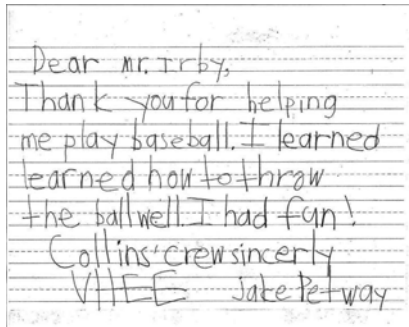 Dear Mr. Irby,
Thank you for helping
me play baseball. I learned
learned how to throw
the ball well I had fun!
Collins' crew sincerly
VHEE Jake Petway